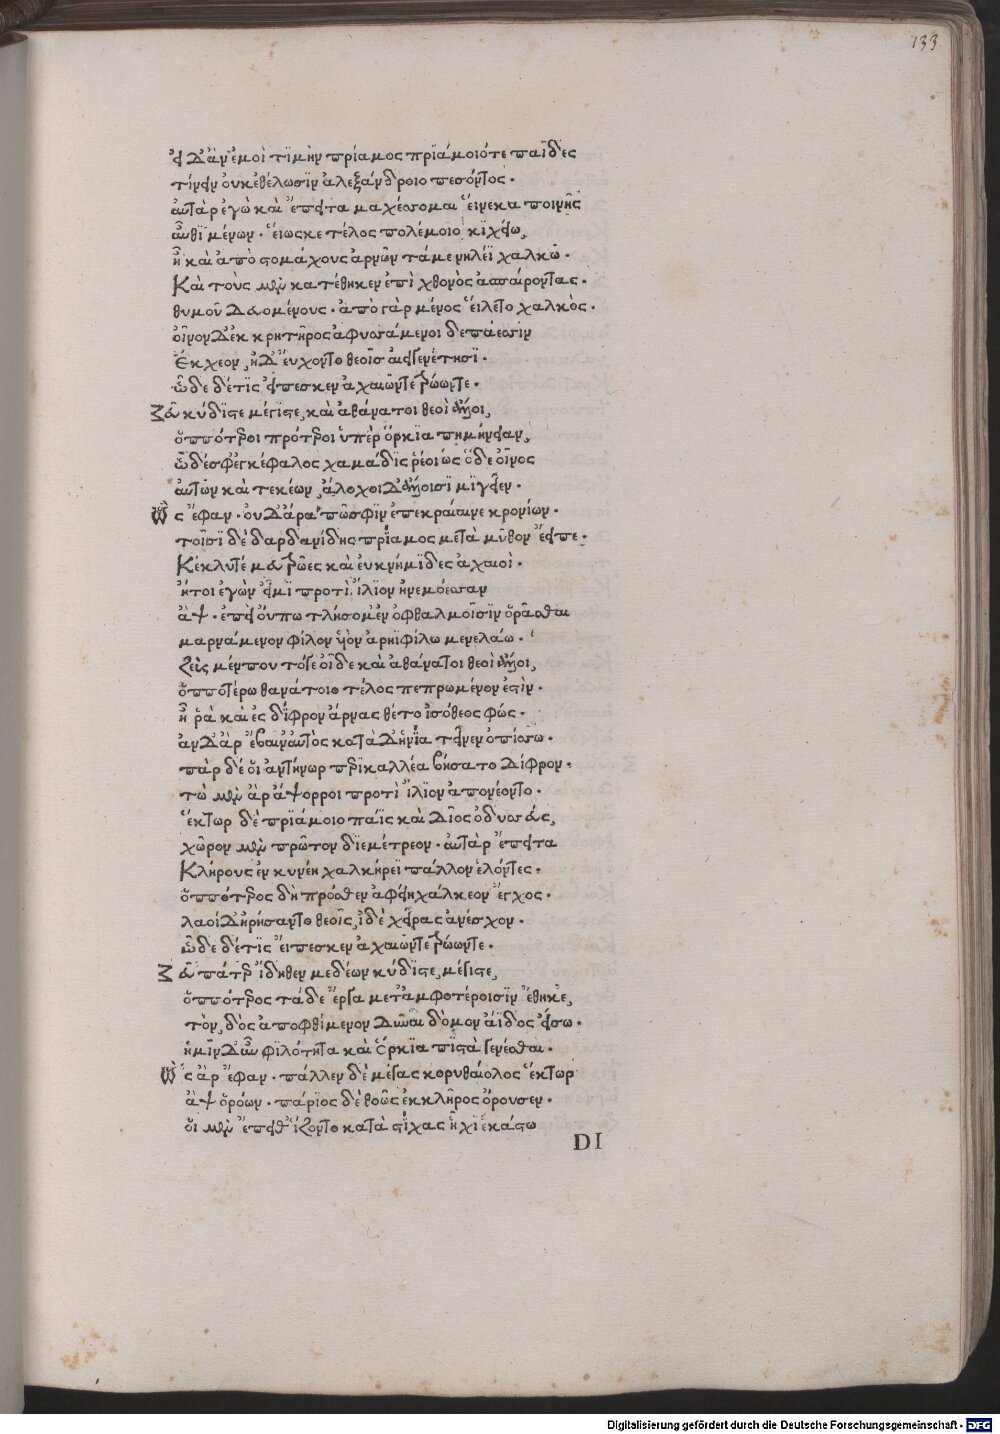 133
εἰ δ' ἂν ἐμοὶ τϊμὴν πρίαμος πρϊάμοιό τε παῖδες
τίνειν οὐκ ἐθέλωσϊν ἀλεξάνδροιο πεσόντος·
αὐτὰρ ἐγὼ καὶ ἔπειτα μαχέσομαι εἵνεκα ποινῆς
αὖθϊ μένων· εἵως κε τέλος πολέμοιο κϊχείω,
ἦ καὶ ἀπὸ στομάχους ἀρνῶν τάμε νηλέϊ χαλκῶ·
Καὶ τοὺς μὲν κατέθηκεν ἐπὶ χθονὸς ἀσπαίροντας·
θυμοῦ δευομένους· ἀπὸ γὰρ μένος εἵλετο χαλκὸς·
οἶνον δ' ἐκ κρητῆρος ἀφυσάμενοι δεπάεσσιν
Ἔκχεον, ἠδ' εὔχοντο θεοῖς αἰειγενέτησϊ·
ὧδε δέ τϊς εἴπεσκεν ἀχαιῶν τε τρώων τε·
Ζεῦ κύδϊστε μέγϊστε, καὶ ἀθάνατοι θεοὶ ἄλλοι,
ὅππότεροι πρότεροι ὑπὲρ ὅρκϊα πημήνειαν,
ὧδέ σφ' ἐγκέφαλος χαμάδϊς ῥέοι ὡς ὅδε οἶνος
αὐτῶν καὶ τεκέων, ἄλοχοι δ' ἄλλοισι μϊγεῖεν·
Ὣς ἔφαν· οὐ δ' ἄρα πώ σφϊν ἐπεκραίαινε κρονίων·
τοῖσϊ δὲ δαρδανίδης πρίαμος μετὰ μῦθον ἔειπε·
Κέκλυτέ μευ τρῶες καὶ ἐυκνήμϊδες ἀχαιοὶ·
ἤτοι ἐγὼν εἶμϊ προτὶ ἴλϊον ἠνεμόεσσαν
ἂψ· ἐπεὶ οὔπω τλήσομ' ἐν ὀφθαλμοῖσϊν ὅρᾶσθαι
μαρνάμενον φίλον υἱὸν ἀρηϊφίλω μενελάω·
Ζεὺς μέν που τόγε οἶδε καὶ ἀθάνατοι θεοὶ ἄλλοι,
ὅπποτέρω θανάτοιο τέλος πεπρωμένον ἐστὶν·
ἦ ῥὰ καὶ ἐς δίφρον ἄρνας θέτο ἰσόθεος φώς·
ἂν δ' ἄρ' ἔβαιν' αὐτὸς κατὰ δ' ἡνία τεῖνεν ὀπίσσω·
πὰρ δέ οἱ ἀντήνωρ περικαλλέα βήσατο δίφρον·
τὼ μὲν ἄρ' ἄψορροι προτὶ ἴλϊον ἀπονέοντο·
ἕκτωρ δὲ πρϊάμοιο πάϊς καὶ δῖος ὀδυσσεύς,
χῶρον μὲν πρῶτον δϊεμέτρεον· αὐτὰρ ἔπειτα
Κλήρους ἐν κυνέη χαλκήρεϊ πάλλον ἑλόντες·
ὅππότερος δὴ πρόσθεν ἀφείη χάλκεον ἔγχος·
λαοὶ δ' ἠρήσαντο θεοῖς, ἰδὲ χεῖρας ἀνέσχον·
ὧδε δέ τϊς εἴπεσκεν ἀχαιῶν τε τρώων τε·
Ζεῦ πάτερ ἴδηθεν μεδέων κύδϊστε, μέγιστε,
ὅππότερος τάδε ἔργα μετ' ἀμφοτέροισϊν ἔθηκε,
τὸν, δὸς ἀποφθίμενον δῦναι δόμον ἄϊδος εἴσω·
ἡμῖν δ' αὖ φιλότητα καὶ ὅρκϊα πϊστὰ γενέσθαι·
Ὣς ἄρ' ἔφαν· πάλλεν δὲ μέγας κορυθαίολος ἕκτωρ
ἂψ ὁρόων· πάριος δὲ θοῶς ἐκ κλῆρος ὄρουσεν·
οἱ μὲν ἔπειθ' ἵζοντο κατὰ στίχας ἧχϊ ἑκάστω
DI
Digitalisierung gefördert durch die Deutsche Forschungsgemeinschaft - DFG